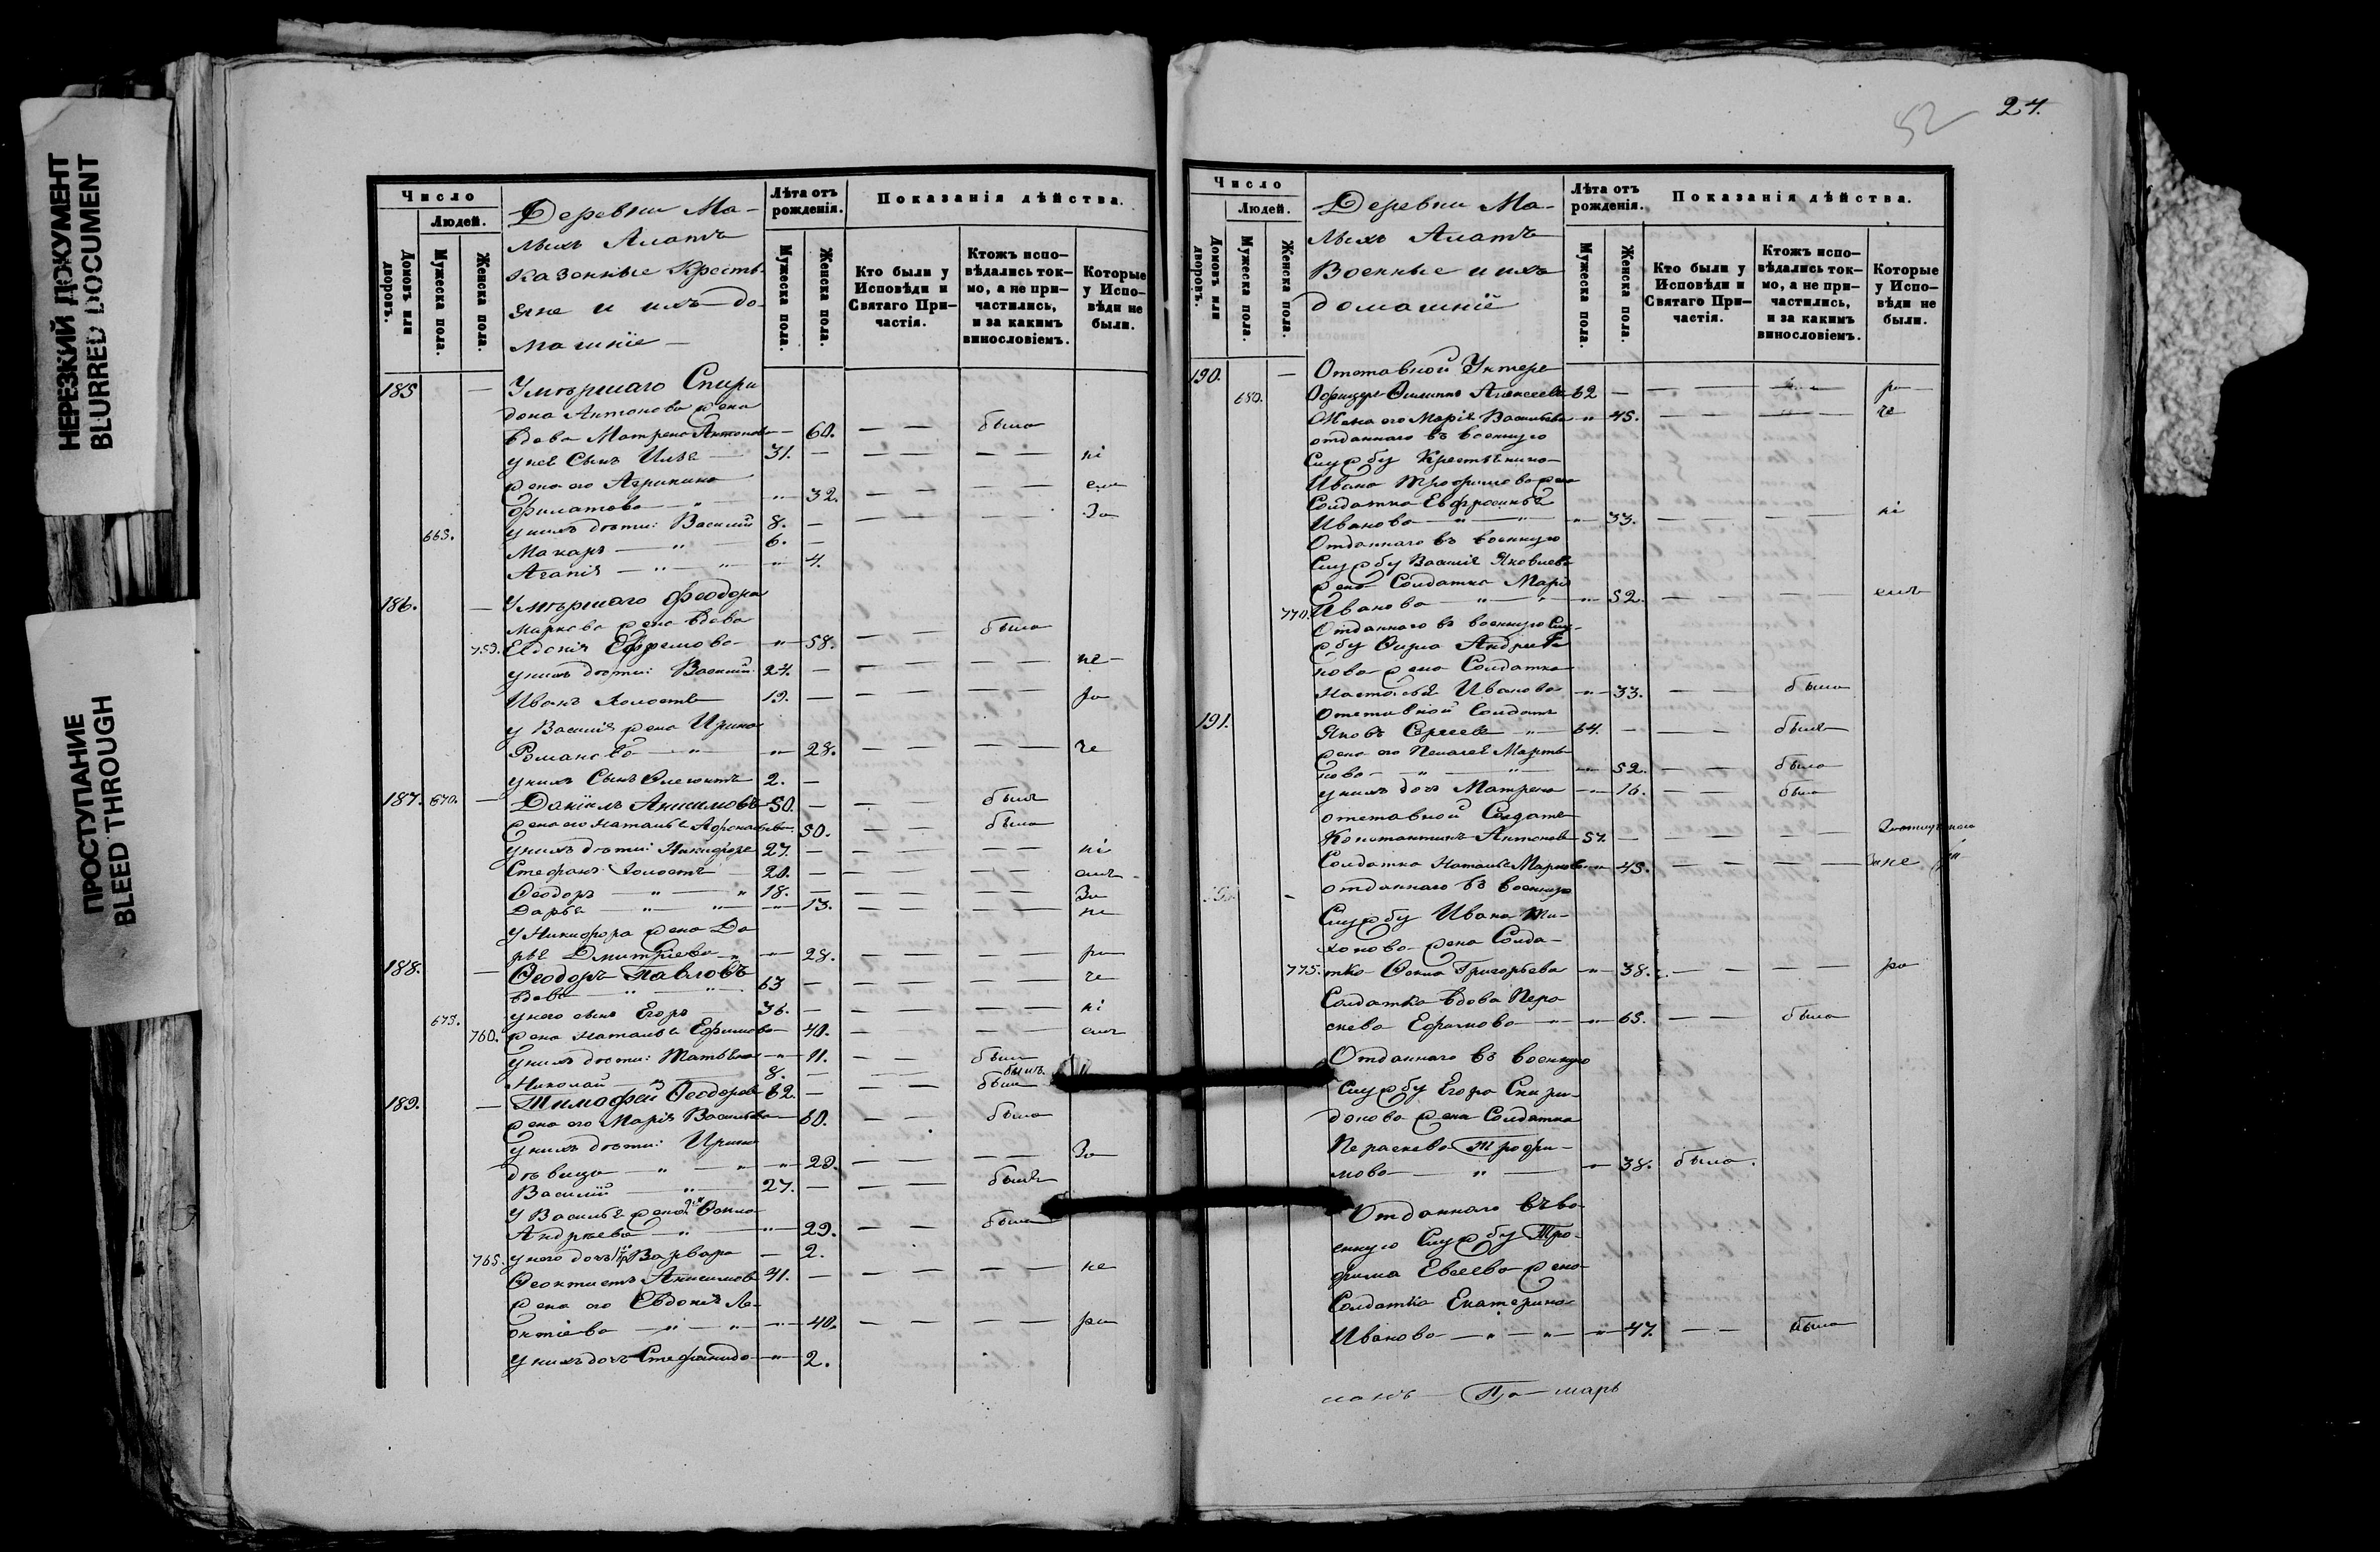 НЕРЕЗКИЙ ДОКУМЕНТ
BLURRED DOCUMENT
ПРОСТУПАНИЕ
BLEED THROUGH
Число
Людей.
Домовъ или дворовъ.
Мужеска пола.
Женска пола.
Деревни Ма-
лыхъ Алатъ
казенные кресть-
яне и ихъ до-
машніе
Лѣта отъ рожденія.
Мужеска пола.
Женска пола.
Показанія дѣйства.
Кто были у Исповѣди и Святаго При-частія.
Ктожъ испо-вѣдались ток-мо, а не при-частились, и за какимъ винословіемъ.
Которые у Испо-вѣди не были.
185 — Умершаго Спири
дона Антонова жена
вдова Матрена Антонова — 60. — — была
у нея Сынъ Илья — 31. — — — — — ні
жена его Агрипина
Филатова — „ — „ — 32. — — — —
663. у нихъ дѣти: Василий 8. — — — — — За
Макаръ — „ — 6. —
Агапія — „ — „ — „ — 4.
186. — Умершаго Феодора
Маркова жена вдова — была
759. Евдокія Ефремова — „ — 58. — —
у нихъ дѣти: Василий 24. — — — — — не
Иванъ Холостъ 19. — — — — — ра
у Василія жена Ирина
Романова — „ — „ — 28. — — — — че
у нихъ Сынъ 2. —
187. 670. — Даніилъ Анисимовъ 50. — — — былъ
жена его Наталья Афонасьева 50. — — была
у нихъ дѣти: Никифоръ 27. — — — — — ні
Стефанъ Холостъ 20. — — — — — емъ
Феодоръ — „ — „ 18. — — — — — За
Дарья — „ — „ — „ — 13. — — — — не
у Никифора жена Да
рья Дмитріева „ — „ — 28. — — — — ра
188. — Феодоръ Павловъ
вдовъ — „ — „ 63 — — — — — че
673. у него сынъ Егоръ 36. — — — — — ні
760. жена Наталья Ефимова — 40. — — — — емъ
у нихъ дѣти: Татьяна — „ — 11. — — была
Николай — „ 8. — — былъ
189. — Тимофей Феодоровъ 62. — — — былъ
жена его Марія Васильева — 60. — — была
у нихъ дѣти: Ирина
дѣвица — „ — „ — „ — 29. — — — — За
Василий — „ 27. — — — былъ
У Василья жена Фекла
Андреева — „ — „ — 29. — — была
765. у него дочь Варвара — 2.
Феоктистъ Анисимовъ 41. — — — — — не
жена его Евдокія Ле-
онтіева — „ — „ — „ — 40. — — — — ра
у нихъ дочь Стефанида — „ — 2.
52
27.
Число
Людей.
Домовъ или дворовъ.
Мужеска пола.
Женска пола.
Деревни Ма-
лыхъ Алатъ
Военные и ихъ
домашніе
Лѣта отъ рожденія.
Мужеска пола.
Женска пола.
Показанія дѣйства.
Кто были у Исповѣди и Святаго При-частія.
Ктожъ испо-вѣдались ток-мо, а не при-частились, и за какимъ винословіемъ.
Которые у Испо-вѣди не были.
190. — Отставной Унтеръ
680. Офицеръ Филиппъ Алексеевъ 62 — — — ра
Жена его Марія Васильева „ 45. — — че
отданнаго въ военную
Службу Крестьянина
Ивана Трофимова жена
Солдатка Евфросинья
Иванова — „ — „ — 33. — — — — ні
Отданнаго въ военную
Службу Василія Яковлева
жена Солдатка Марія
770. Иванова — „ — „ — 52. — — — — емъ
Отданнаго въ военную Слу-
жбу
нова жена Солдатка
Настасья Иванова — „ — 33. — — была
191. Отставной Солдатъ
Яковъ Сергеевъ „ 64. — — — былъ
жена его Пелагея Марты-
нова — „ — „ — „ — 52. — — была
у нихъ дочь Матрена — „ — 16. — — была
отставной Солдатъ
Константинъ Антоновъ 57. — — — —
Солдатка Наталья Маркова „ 45. — — — — не
отданнаго въ военную
Службу Ивана Ти-
хонова жена Солда-
775. тка Фекла Григорьева — „ — 38. — — — — ра
Солдатка вдова Пера
скева Ефимова — „ — „ — 65. — — была
Отданнаго въ военную
Службу Егора Спири-
донова жена Солдатка
Пераскева Трофи-
мова — „ — „ — 38. была.
Отданнаго въ во-
енную Службу Тро-
фима Евсеева жена
Солдатка Екатерина
Иванова — „ — „ — „ — 47. — — была